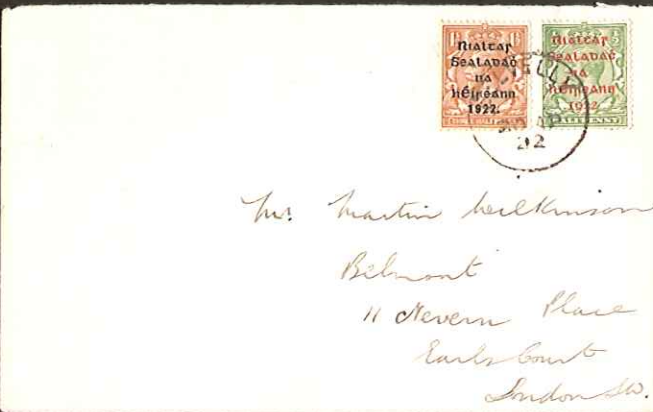 Rialtar
Sealadaċ
na
hÉireann
1922.
Rialtar
Sealadaċ
na
hÉireann
1922
HALFPENNY
22
Mr. Martin Wilkinson
Belmont
11 Nevern Place
Earls Court
London SW.